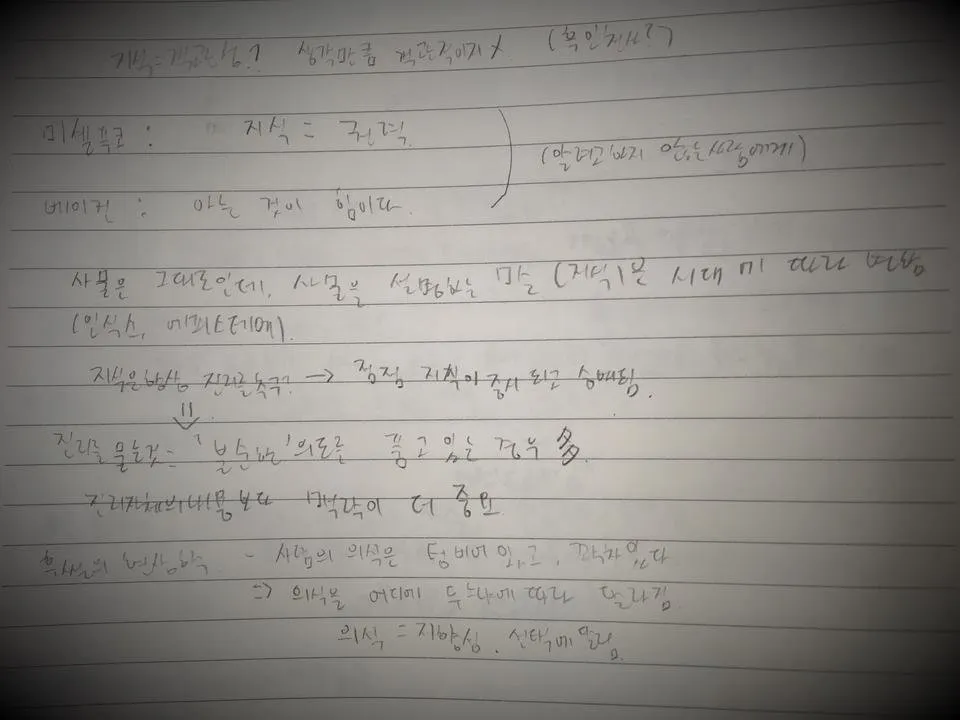 지식=객관성? 생각만큼 객관적이지 X
미셸푸코 : 지식 = 권력
(알려고 하지 않는 사람에게)
베이컨 : 아는 것이 힘이다.
사물은 그대로인데, 사물을 설명하는 말 (지식)은 시대에 따라 변함
(인식소, 에피스테메).
지식은 항상 진리를 추구? → 점점 지식이 중시되고 숭배됨.
진리를 묻는것 = '불순한' 의도를 품고 있는 경우 多.
진리자체의 내용보다 맥락이 더 중요
후설의 현상학 - 사람의 의식은 텅 비어 있고,
⇒ 의식을 어디에 두느냐에 따라 달라짐.
의식 = 지향성. 선택에 달림.